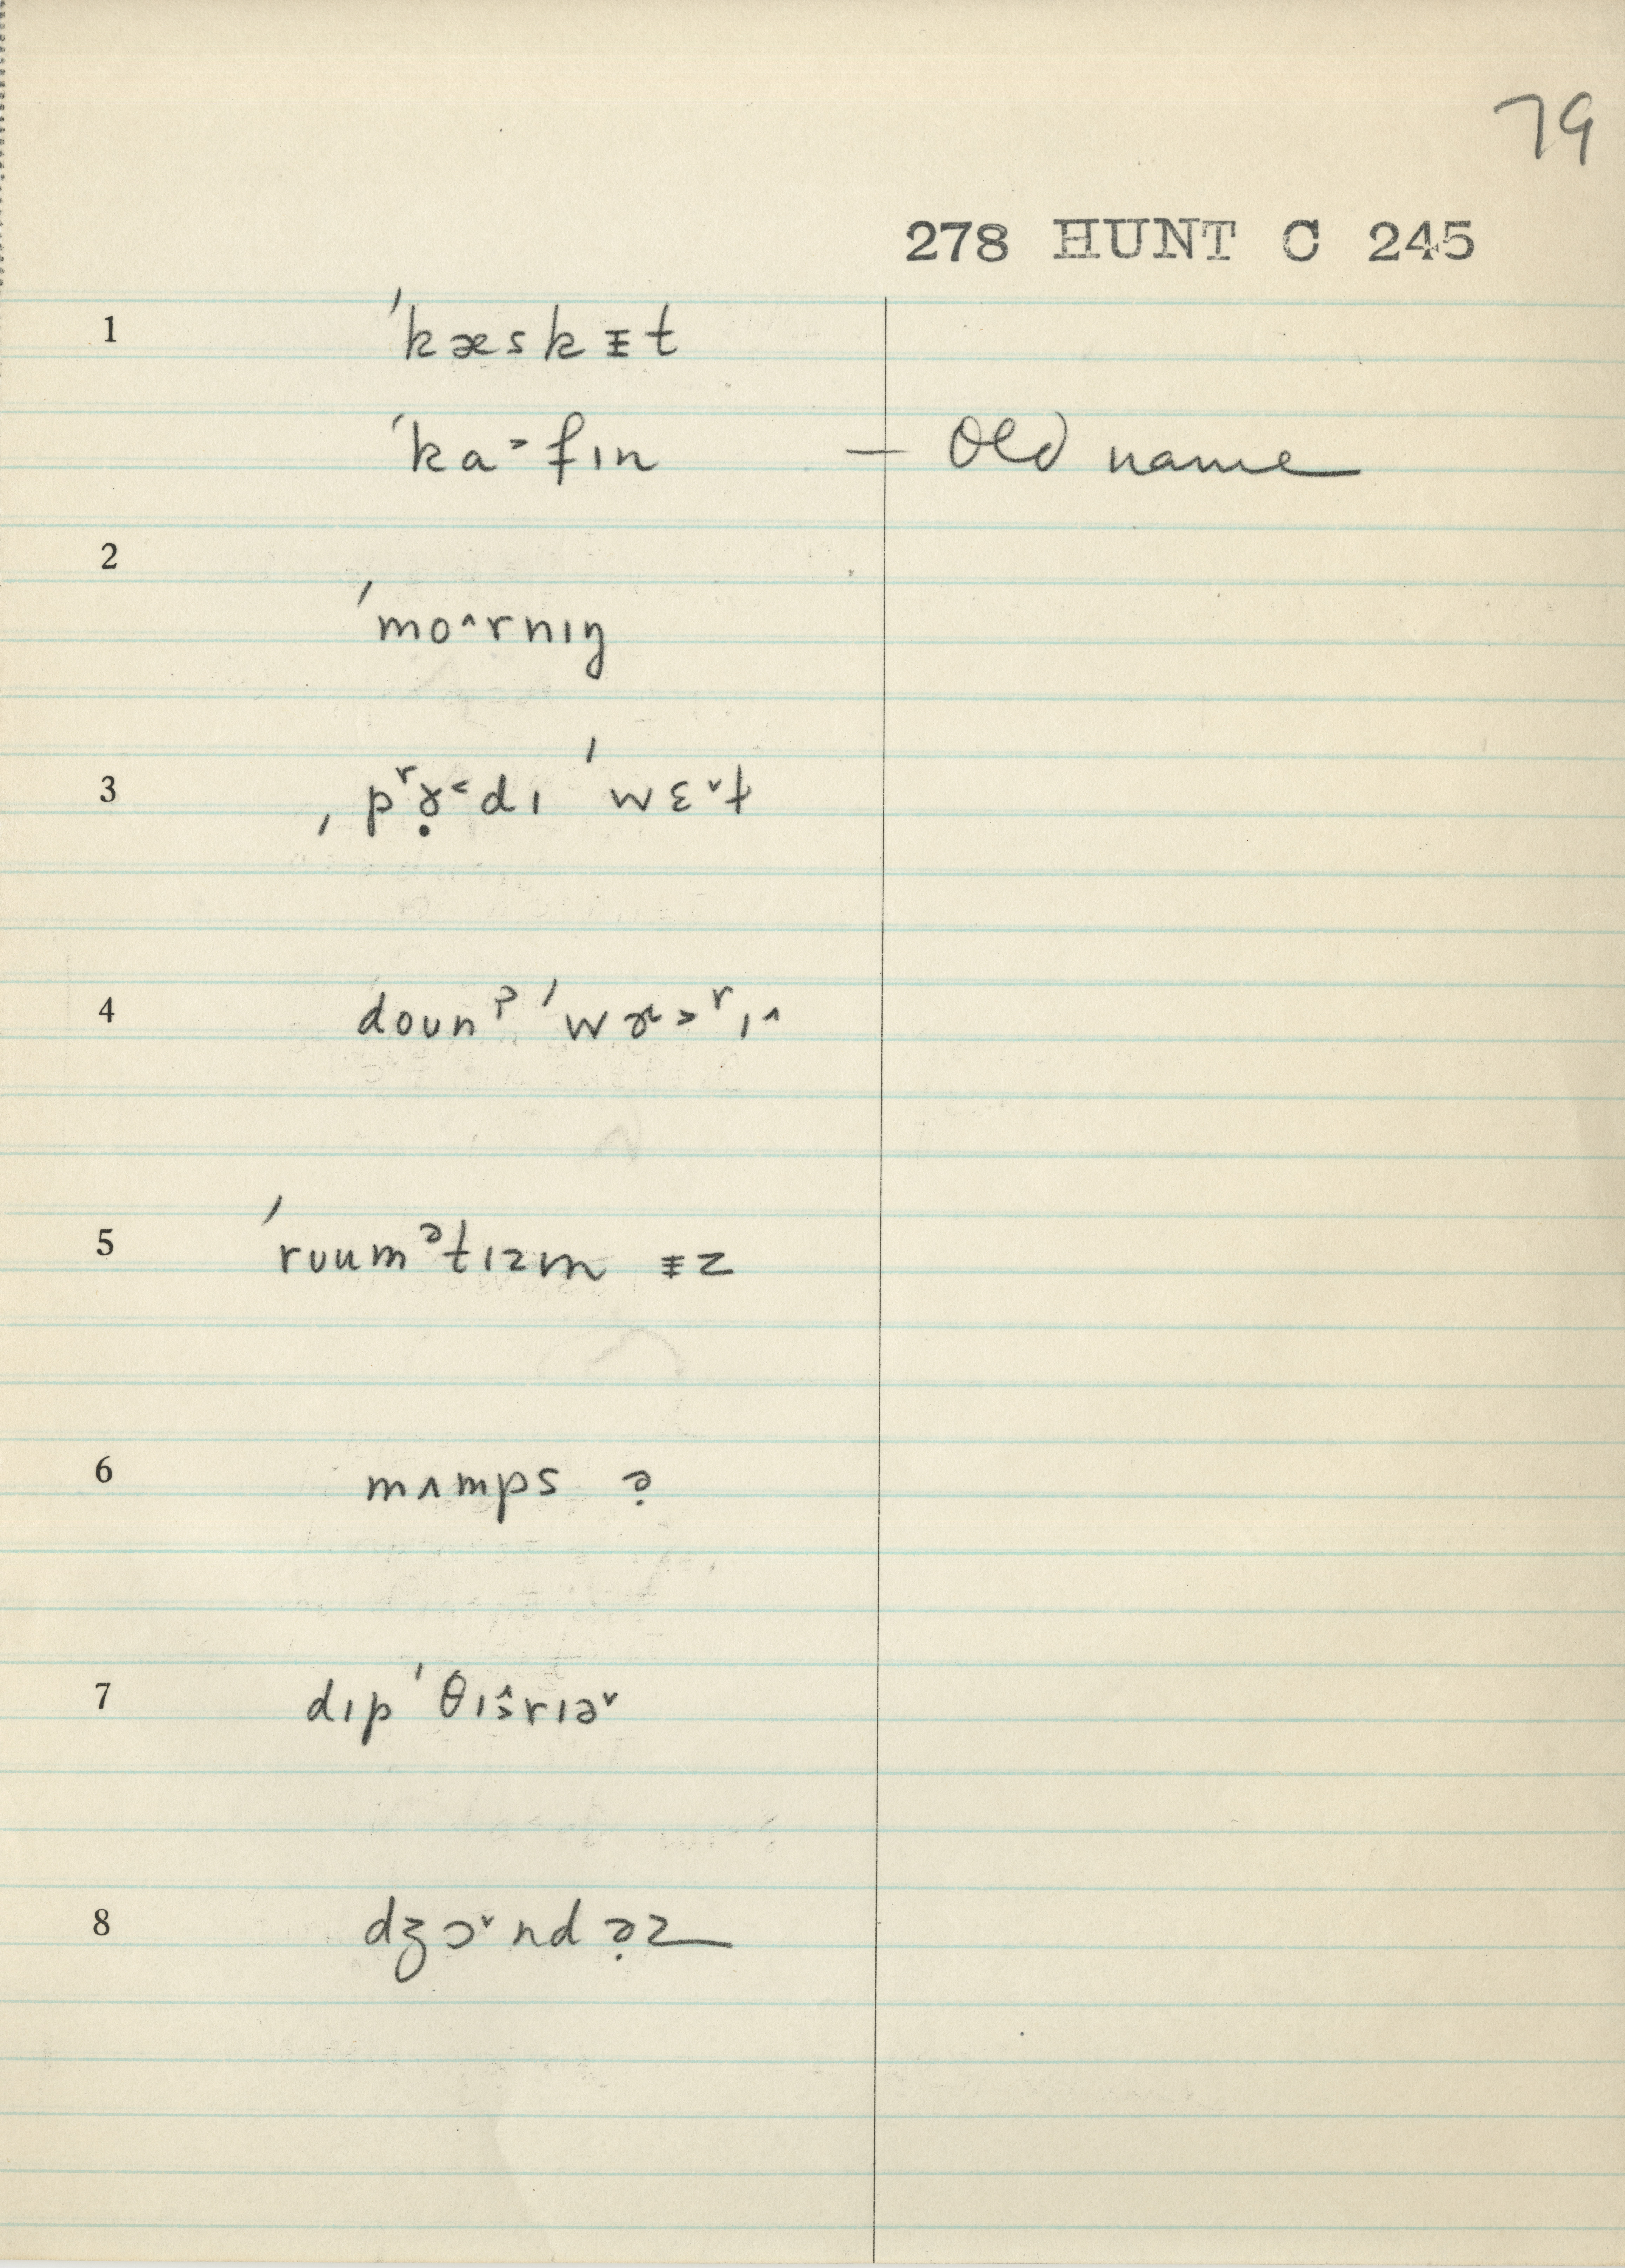 79
278 HUNT C 245
1 ˈkæskɪ̵t
ˈka˃fɪn – Old name
2
ˈmo^rnɪŋ
3 ˌpʳɤ̣˂dɪ ˈwɛ˅t
4 doʊnˀ ˈwɚ˃ʳɪ^
5 ˈrʊumᵊtɪzm ɪ̵z
6 mʌmps ə̣
7 dɪpˈθɪ˄˃rɪə˅
8 dʒɔ˅ndə̣z